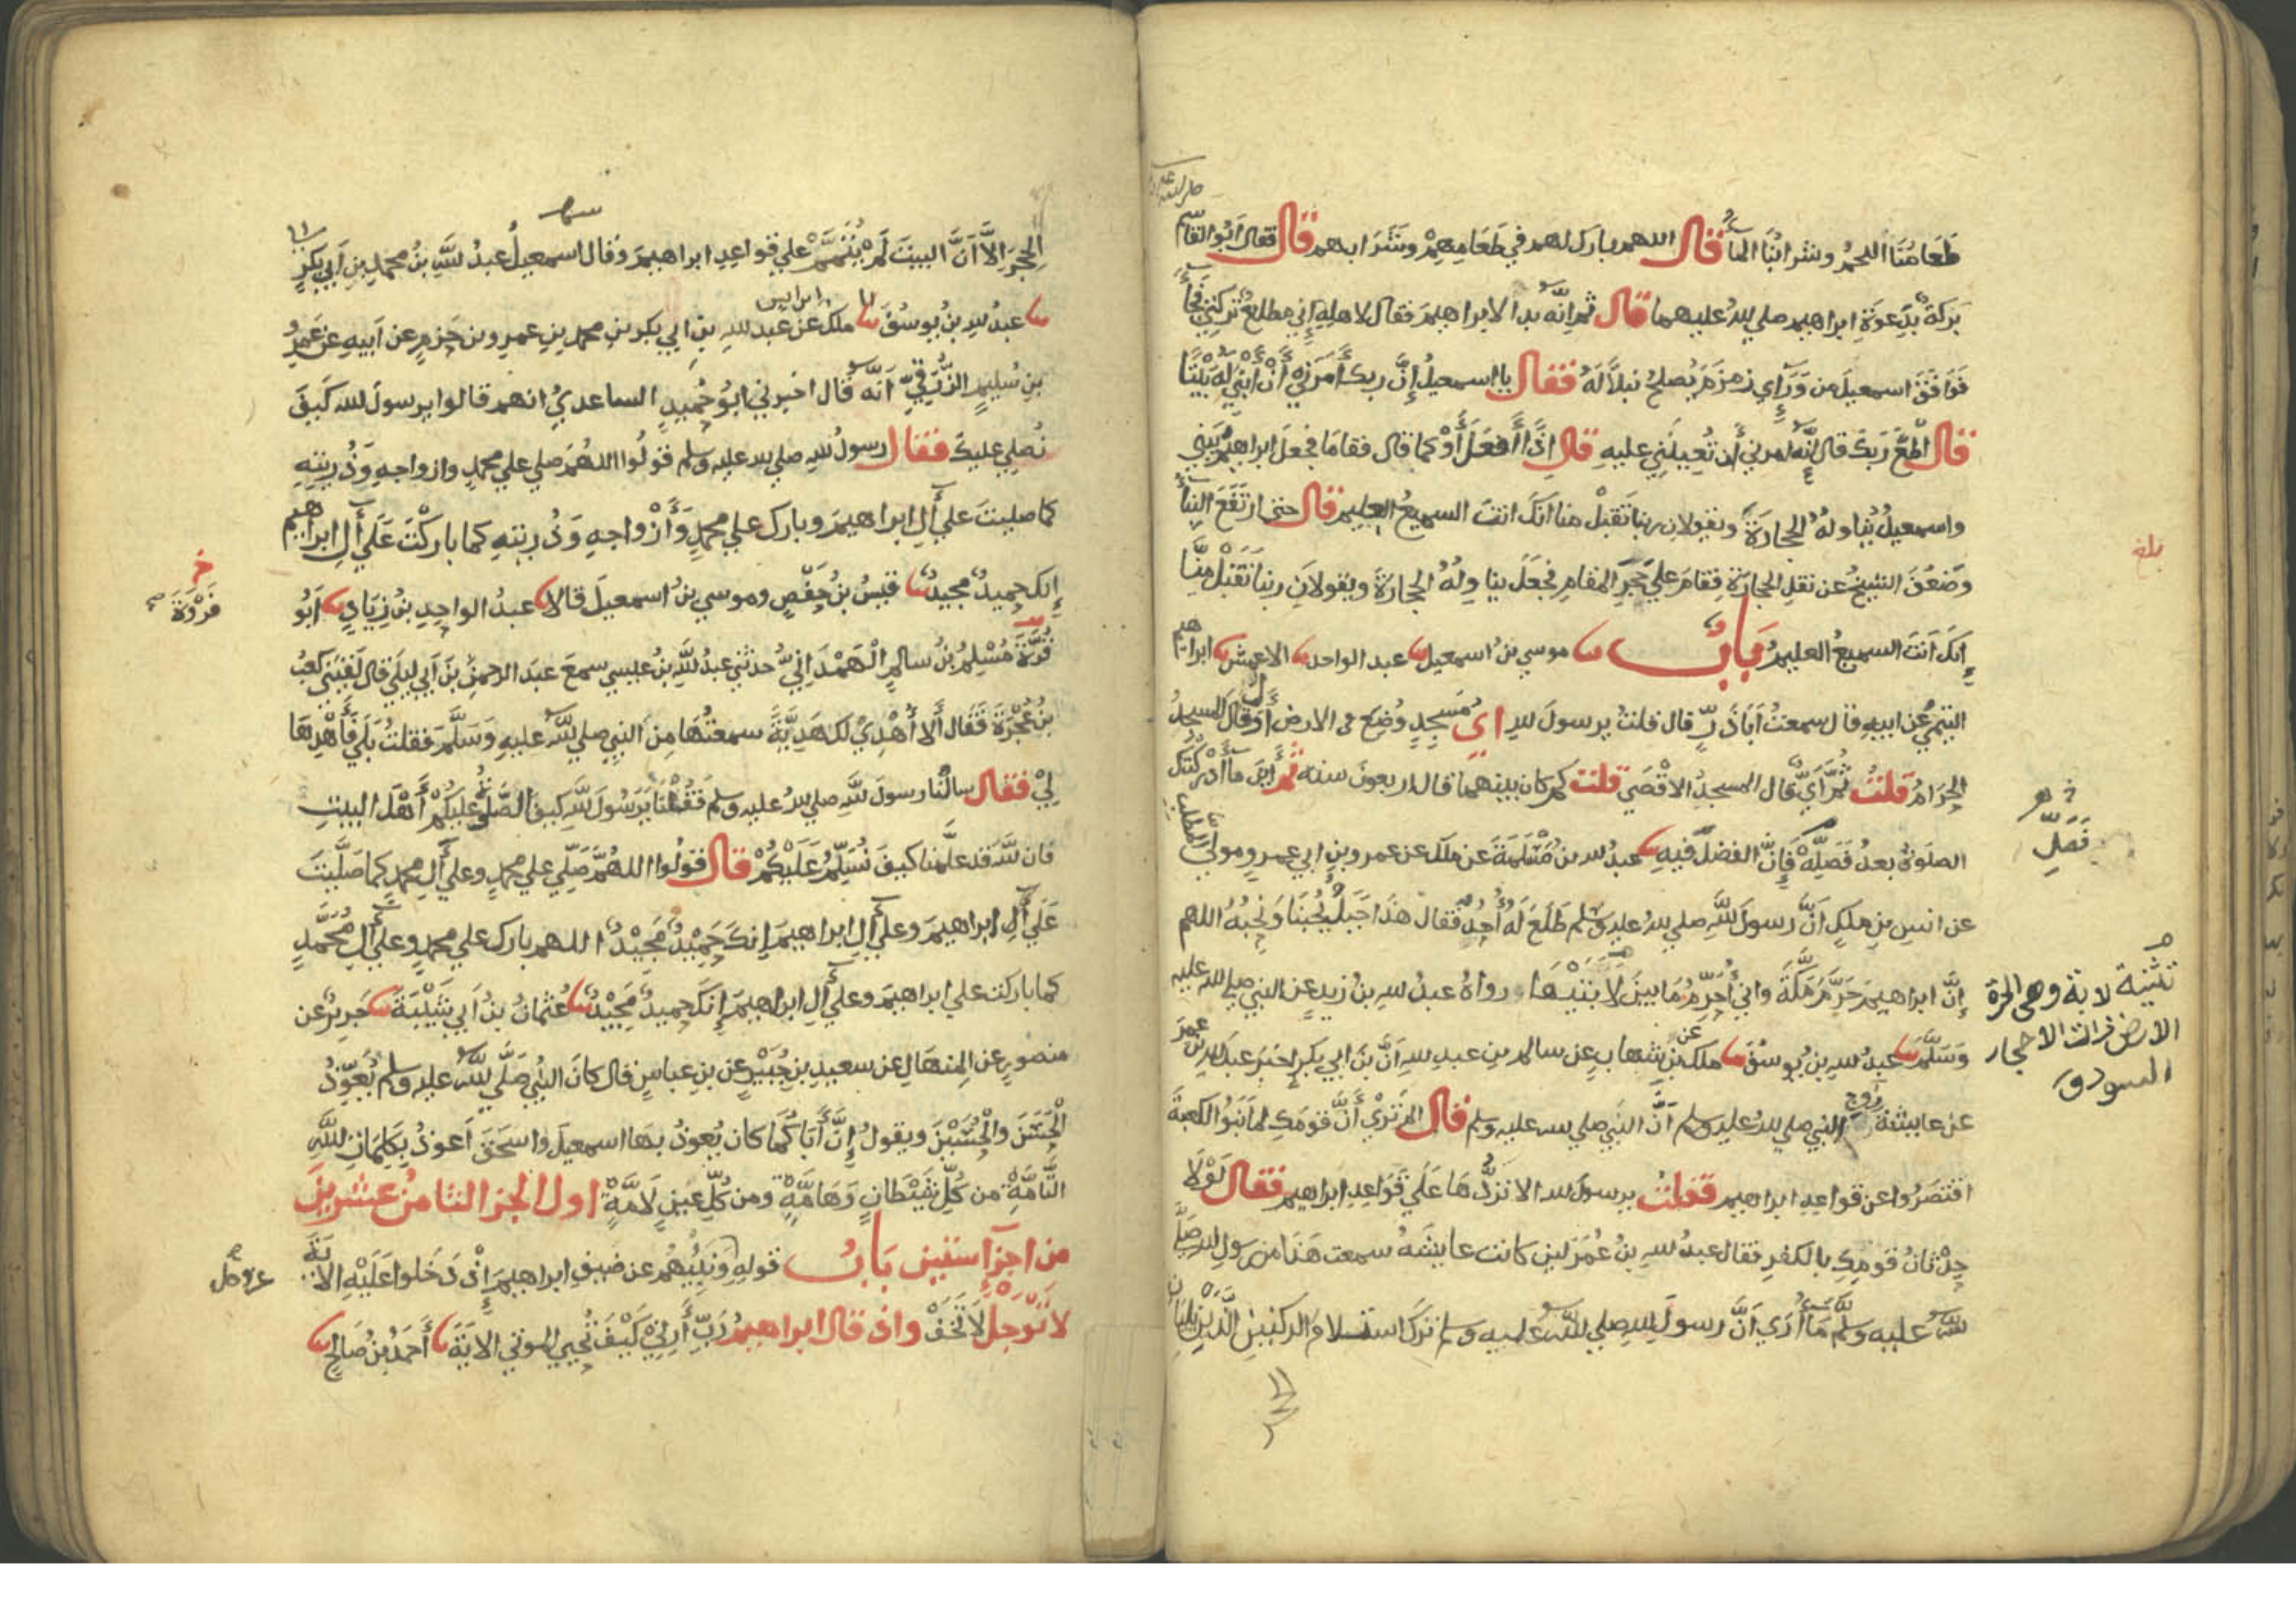 طَعَامُنَا اللحمُ وشرابُنَا الماءُ قال اللهم بارك لهم في طَعَامِهِمْ وشَرَابهم قال فقال ابُو القاسم
بَرَكَةٌ بِدَعوَةِ ابراهيم صلي الله عليهما قال ثم انَّهُ بدا لابراهيمَ فقال لاهلِهِ اِنِي مطلعٌ تركتي فجاءَ
فَوَافَقَ اسمعيلَ من وَرَاءِ زمزَمَ يُصلحُ نبلاً لَهُ فقال يا اسمعيلُ اِنَّ ربكَ أمَرَنِي أنْ أبْنِيَ لَهُ بَيْتًا
قال أطِعْ رَبكَ قال اِنَّهُ امرني أن تُعِينَنِي عليهِ قال اِذًا أَفعَلَ أوْ كما قال فقامَا فجعلَ ابراهيمُ يَبْنِي
واسمعيلُ يُناولهُ الحجارَةَ ويقولان ربنا تَقبَّلْ منا انكَ انتَ السميعُ العليم قال حتى ارتَفَعَ البِنَاءُ
وضَعُفَ الشيخُ عن نقلِ الحجارَةِ فقامَ علي حَجَرِ المقامِ فجعَلَ يناوِلُهُ الحجارَةَ ويقولانِ ربنا تَقَبَّلْ مِنَّا
اِنكَ اَنتَ السميعُ العليمُ بَابٌ موسي بنُ اسمعيلَ عبد الواحد الاعمش ابراهيم
التيميُّ عن ابيهِ قال سمعتُ اَبَا ذَرٍّ قال قلتُ يرسولَ للهِ ايُّ مَسجِدٍ وُضِعَ في الارض أوَّلَ قال المسجدُ
الحَرَامُ قلتُ ثُمَّ أيُّ قال المسجدُ الاقْصَي قلت كم كان بينهما قال اربعونَ سنه ثُم أينَ ما أدْرَكَتكَ
الصلوةُ بعدُ فَصَلِّهْ فإِنَّ الفضلَ فيهِ عبدُ لله بن مَسْلَمَةَ عن ملك عن عمرو بنِ ابي عمرٍو مولي المطلب
عن انسِ بنِ ملكٍ اَنَّ رسولَ للَّهِ صلي للهُ عليه وسلم طَلَعَ لَهُ أُحُدٌ فقال هذا جَبَلٌ يُحُبنَا ونُحِبُهُ اللهم
اِنَّ ابراهيمَ حَرَّمَ مَكَّةَ واني أُحَرِّمُ مَا بينَ لَابَتَيْهَا رواهُ عبدُ للهِ بنُ زيدٍ عن النبي صلي لله عليه
وَسَلَّمَ عبدُ للهِ بن يُوسُفَ ملك عن بن شهابٍ عن سالم بن عبد للهِ أنَّ بنَ ابي بكرٍ اخبَرَ عبدَ للهِ بن عمرَ
عن عايشة زوج النبي صلي للهُ عليه وسلم اَنَّ النبي صلي لله عليه وسلم قال الم تَرَيْ أَنَّ قومَكِ لما بَنَوُا الكعبةَ
اقتصَرُوا عن قواعِدِ ابراهيم فقلت يرسولَ لله الا تردُّهَا عَلَي قَوَاعِدِ ابراهيم فقال لَوْلَا
حِدْثَانُ قومِكِ بالكفرِ فقال عبدُ للهِ بنُ عُمَرَ لين كانت عايشَهُ سمعت هَذَا من رسولِ للهِ صَلَّي
للهُ عليه وسلم مَا أُرَي اَنَّ رسولَ للهِ صلي للهُ عليه وسلم ترَكَ استلامَ الركنينِ الَّذَيْنِ يَليَانِ
بلغ
فَصَلِّ
تثنية لابة وهي الحرة
الارض ذات الاحجار
السود ق
الحِجْرَ الاَّ اَنَّ البيتَ لَمْ يُتَمَّمْ علي قواعِدِ ابراهيمَ وقال اسمعيلُ عبدُ للَّهِ بنُ محمدِ بنِ اَبي بَكرٍ
عبدُ للهِ بنُ يُوسُفَ ملك عن عبد للهِ بنِ ابي بكر بنِ محمد بنِ عمرِو بن حَزمٍ عن اَبيهِ عن عَمرِو
بنِ سُليمٍ الزُّرَقِيِّ اَنَّهُ قال اخبرني ابُو حُميدٍ الساعديُّ انهم قالوا يرسولَ لله كَيفَ
نُصلِي عليكَ فقال رسولُ للهِ صلي لله عليه وسلم قولُوا اللهُمَّ صلِّي علي محمدٍ وازواجِهِ وَذُرِيتِهِ
كما صليتَ علي أَلِ ابراهيمَ وبارك علي محمدٍ وَأَزْواجِهِ وَذُرِيتهِ كما باركْتَ عَلَي أَلِ ابراهيم
إِنك حميدٌ مجيدٌ قيسُ بنُ حَفْصٍ وموسي بنُ اسمعيلَ قالا عبدُ الواحِدِ بنُ زِيَادٍ اَبُو
فَرْوَةَ
قُرَّةَ مُسْلِمُ بنُ سالمٍ الْهَمْدَانِيُّ حدثني عبدُ للَّهِ بنُ عيسي سمعَ عبدَ الرحمنِ بنَ اَبي ليلَي قال لَقِيَنِي كعبُ
بنُ عُجْرَةَ فَقَال أَلا أُهْدِيْ لكَ هَدِيَّةً سمعتُهَا مِنَ النبِيِّ صلي للَّهُ عليهِ وَسَلَّمَ فقلتُ بَلَي فَأَهْدِهَا
لِيْ فقال سالْنَا رسولَ للَّهِ صلي للهُ عليه وسلم فَقُلْنَا يَرَسُولَ للَّهِ كيفَ الصَّلوةُ عليكُمْ أَهْلَ البيتِ
فان للَّهَ قد علَّمَنا كيفَ نُسَلِّمُ عَلَيْكُمْ قال قولُوا اللهُمَّ صَلِّي علي محمدٍ وعلي أَلِ محمدٍ كما صَلَّيْتَ
عَلَي أَلِ ابراهيمَ وعلي أَلِ ابراهيمَ إِنكَ حَمِيْدٌ مَجِيْدٌ اللهم بارك علي محمدٍ وعلي أَلِ مُحَمَّدٍ
كما باركت علي ابراهيمَ وعلي أَلِ ابراهيمَ إِنكَ حميدٌ مَجِيْدٌ عُثمانُ بنُ اَبي شَيْبَةَ جَريرٌ عن
منصورٍ عن المِنهَالِ عن سعيدِ بنِ جُبَيْرٍ عن بنِ عباسٍ قال كانَ النبي صَلَّي للَّهُ عليه وسلم يُعَوِّذُ
الْحَسَنَ والْحُسَيْنَ ويقولُ إِنَّ أَبَاكُمَا كان يُعوذُ بهَا اسمعيلَ واسحَقَ اَعوذُ بِكَلِمَاتِ للَّهِ
التَّامَّةِ من كُلِّ شَيْطَانٍ وَهَامَّةٍ ومن كُلِّ عينٍ لَامَّةٍ اول الجز الثامن عشرين
من اجزآ ستين بَابُ قولِهِ وَنَبِّيُهُم عن ضيفِ ابراهيمَ إِذْ دَخَلوا عَلَيْهِ الايَةَ
عز وجل
لا تَوْجَلْ لَا تَخَفْ واذ قال ابراهيمُ رَبِّ أَرِنِيْ كَيْفَ تُحيي الموتي الايَةَ أَحمدُ بنُ صَالحٍ